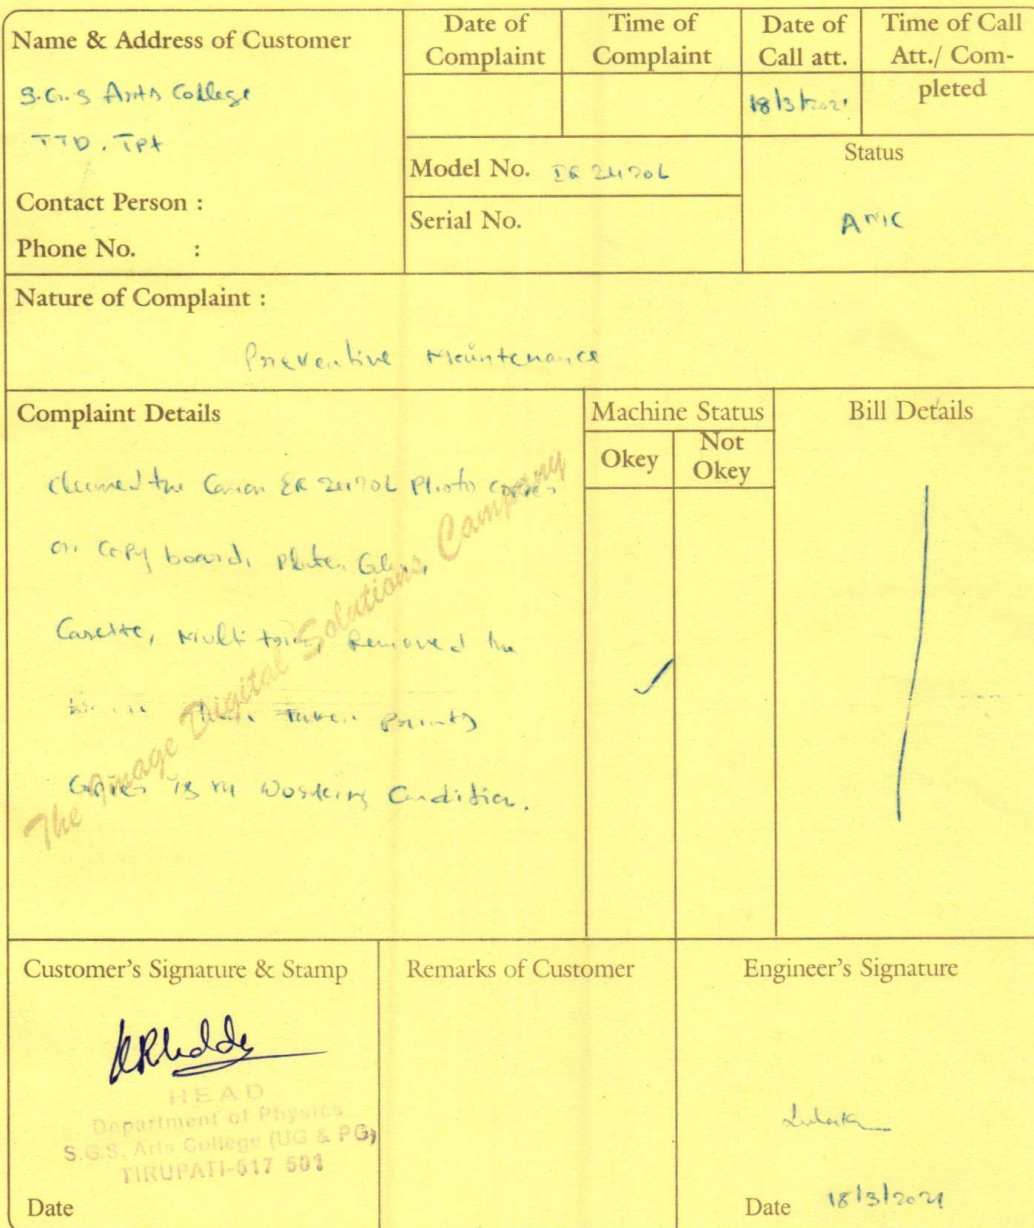 Name & Address of Customer
S.G.S Arts College
TTD. TPT
Contact Person :
Phone No. :
Date of Complaint
Time of Complaint
Date of Call att.
18/3/2021
Time of Call Att./ Com-pleted
Model No. IR 2420L
Serial No.
Status
AMC
Nature of Complaint :
Preventive Maintenance
Complaint Details
cleaned the Canon IR 2420L Photo copier
on copy board, Platen Glass,
Casette, Multi tray, Removed the
Taken Prints
Copier is in Working Condition.
The Image Digital Solutions Campany
Machine Status
Okey
Not Okey
✓
Bill Details
Customer's Signature & Stamp
HEAD
Department of Physics
S.G.S. Arts College (UG & PG)
TIRUPATI-517 501
Date
Remarks of Customer
Engineer's Signature
Date 18/3/2021